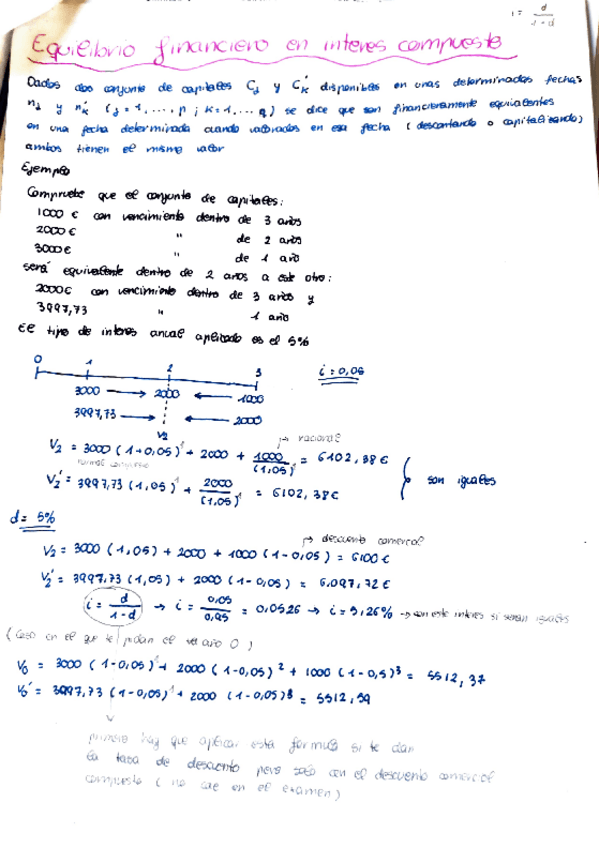 i = d / 1-d
Equilibrio financiero en interes compuesto
Dados dos conjunto de capitales Cj y C'k disponibles en unas determinadas fechas
nj y n'k (j = 1, ..., p ; k = 1, ... q) se dice que son financieramente equivalentes
en una fecha determinada cuando valorados en esa fecha (descontando o capitalizando)
ambos tienen el mismo valor
Ejemplo
Compruebe que el conjunto de capitales:
1000 € con vencimiento dentro de 3 años
2000 € " de 2 años
3000 € " de 1 año
será equivalente dentro de 2 años a este otro:
2000€ con vencimiento dentro de 3 años y
3997,73 " 1 año
El tipo de interes anual aplicado es el 5%
0 1 2 3
i = 0,05
3000 → 2000 ← 1000
3997,73 → ← 2000
V2
→ racional
V2 = 3000 (1+0,05)^1 + 2000 + 1000 / (1,05)^1 = 6102,38 €
V2' = 3997,73 (1,05)^1 + 2000 / (1,05)^1 = 6102,38€
son iguales
d = 5%
→ descuento comercial
V2 = 3000 (1,05) + 2000 + 1000 (1-0,05) = 6100 €
V2' = 3997,73 (1,05) + 2000 (1-0,05) = 6.097,72 €
i = d / 1-d → i = 0,05 / 0,95 = 0,0526 → i = 5,26% → con este interes si serían iguales
(Caso en el que te pidan el año 0)
V0 = 3000 (1-0,05)^1 + 2000 (1-0,05)^2 + 1000 (1-0,5)^3 = 5512,37
V0' = 3997,73 (1-0,05)^1 + 2000 (1-0,05)^3 = 5512,59
primero hay que aplicar esta formula si te dan
la tasa de descuento pero solo con el descuento comercial
compuesto (no cae en el examen)